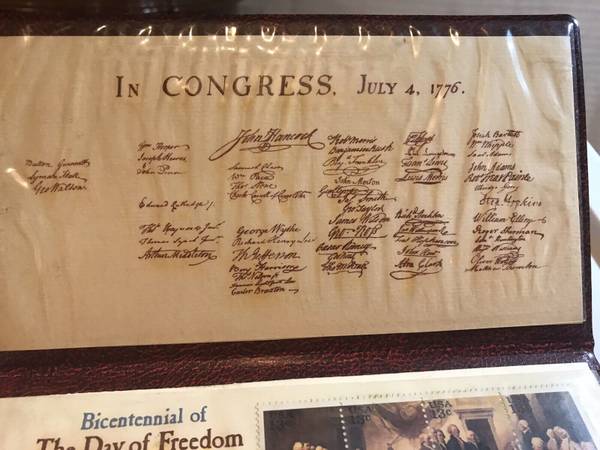 IN CONGRESS, JULY 4, 1776.
Button Gwinnett
Lyman Hall
Geo Walton
Wm Hooper
Joseph Hewes
John Penn
Edward Rutledge /.
Thos Heyward Junr.
Thomas Lynch Junr.
Arthur Middleton
John Hancock
Samuel Chase
Wm Paca
Thos Stone
Charles Carroll of Carrollton
George Wythe
Richard Henry Lee
Th Jefferson
Benj Harrison
Thos Nelson jr.
Francis Lightfoot Lee
Carter Braxton
Robt Morris
Benjamin Rush
Benj Franklin
John Morton
Geo Clymer
Jas Smith
Geo Taylor
James Wilson
Geo Ross
Caesar Rodney
Geo Read
Tho M:Kean
Wm Floyd
Phil. Livingston
Frans Lewis
Lewis Morris
Richd Stockton
Jno Witherspoon
Fras Hopkinson
John Hart
Abra Clark
Josiah Bartlett
Wm Whipple
Saml Adams
John Adams
Robt Treat Paine
Elbridge Gerry
Step Hopkins
William Ellery
Roger Sherman
Saml Huntington
Wm Williams
Oliver Wolcott
Matthew Thornton
Bicentennial of
The Day of Freedom
USA
13c
USA
13c
USA
13c